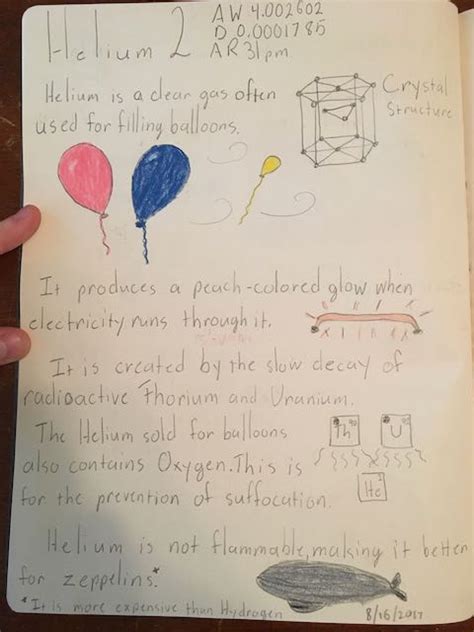 Helium 2
AW 4.002602
D 0.0001785
AR 31pm
Helium is a clear gas often
used for filling balloons.
Crystal
Structure
It produces a peach-colored glow when
electricity runs through it.
It is created by the slow decay of
radioactive Thorium and Uranium.
The Helium sold for balloons
also contains Oxygen. This is
for the prevention of suffocation.
Th U
He
Helium is not flammable, making it better
for zeppelins.*
*It is more expensive than Hydrogen
8/16/2017